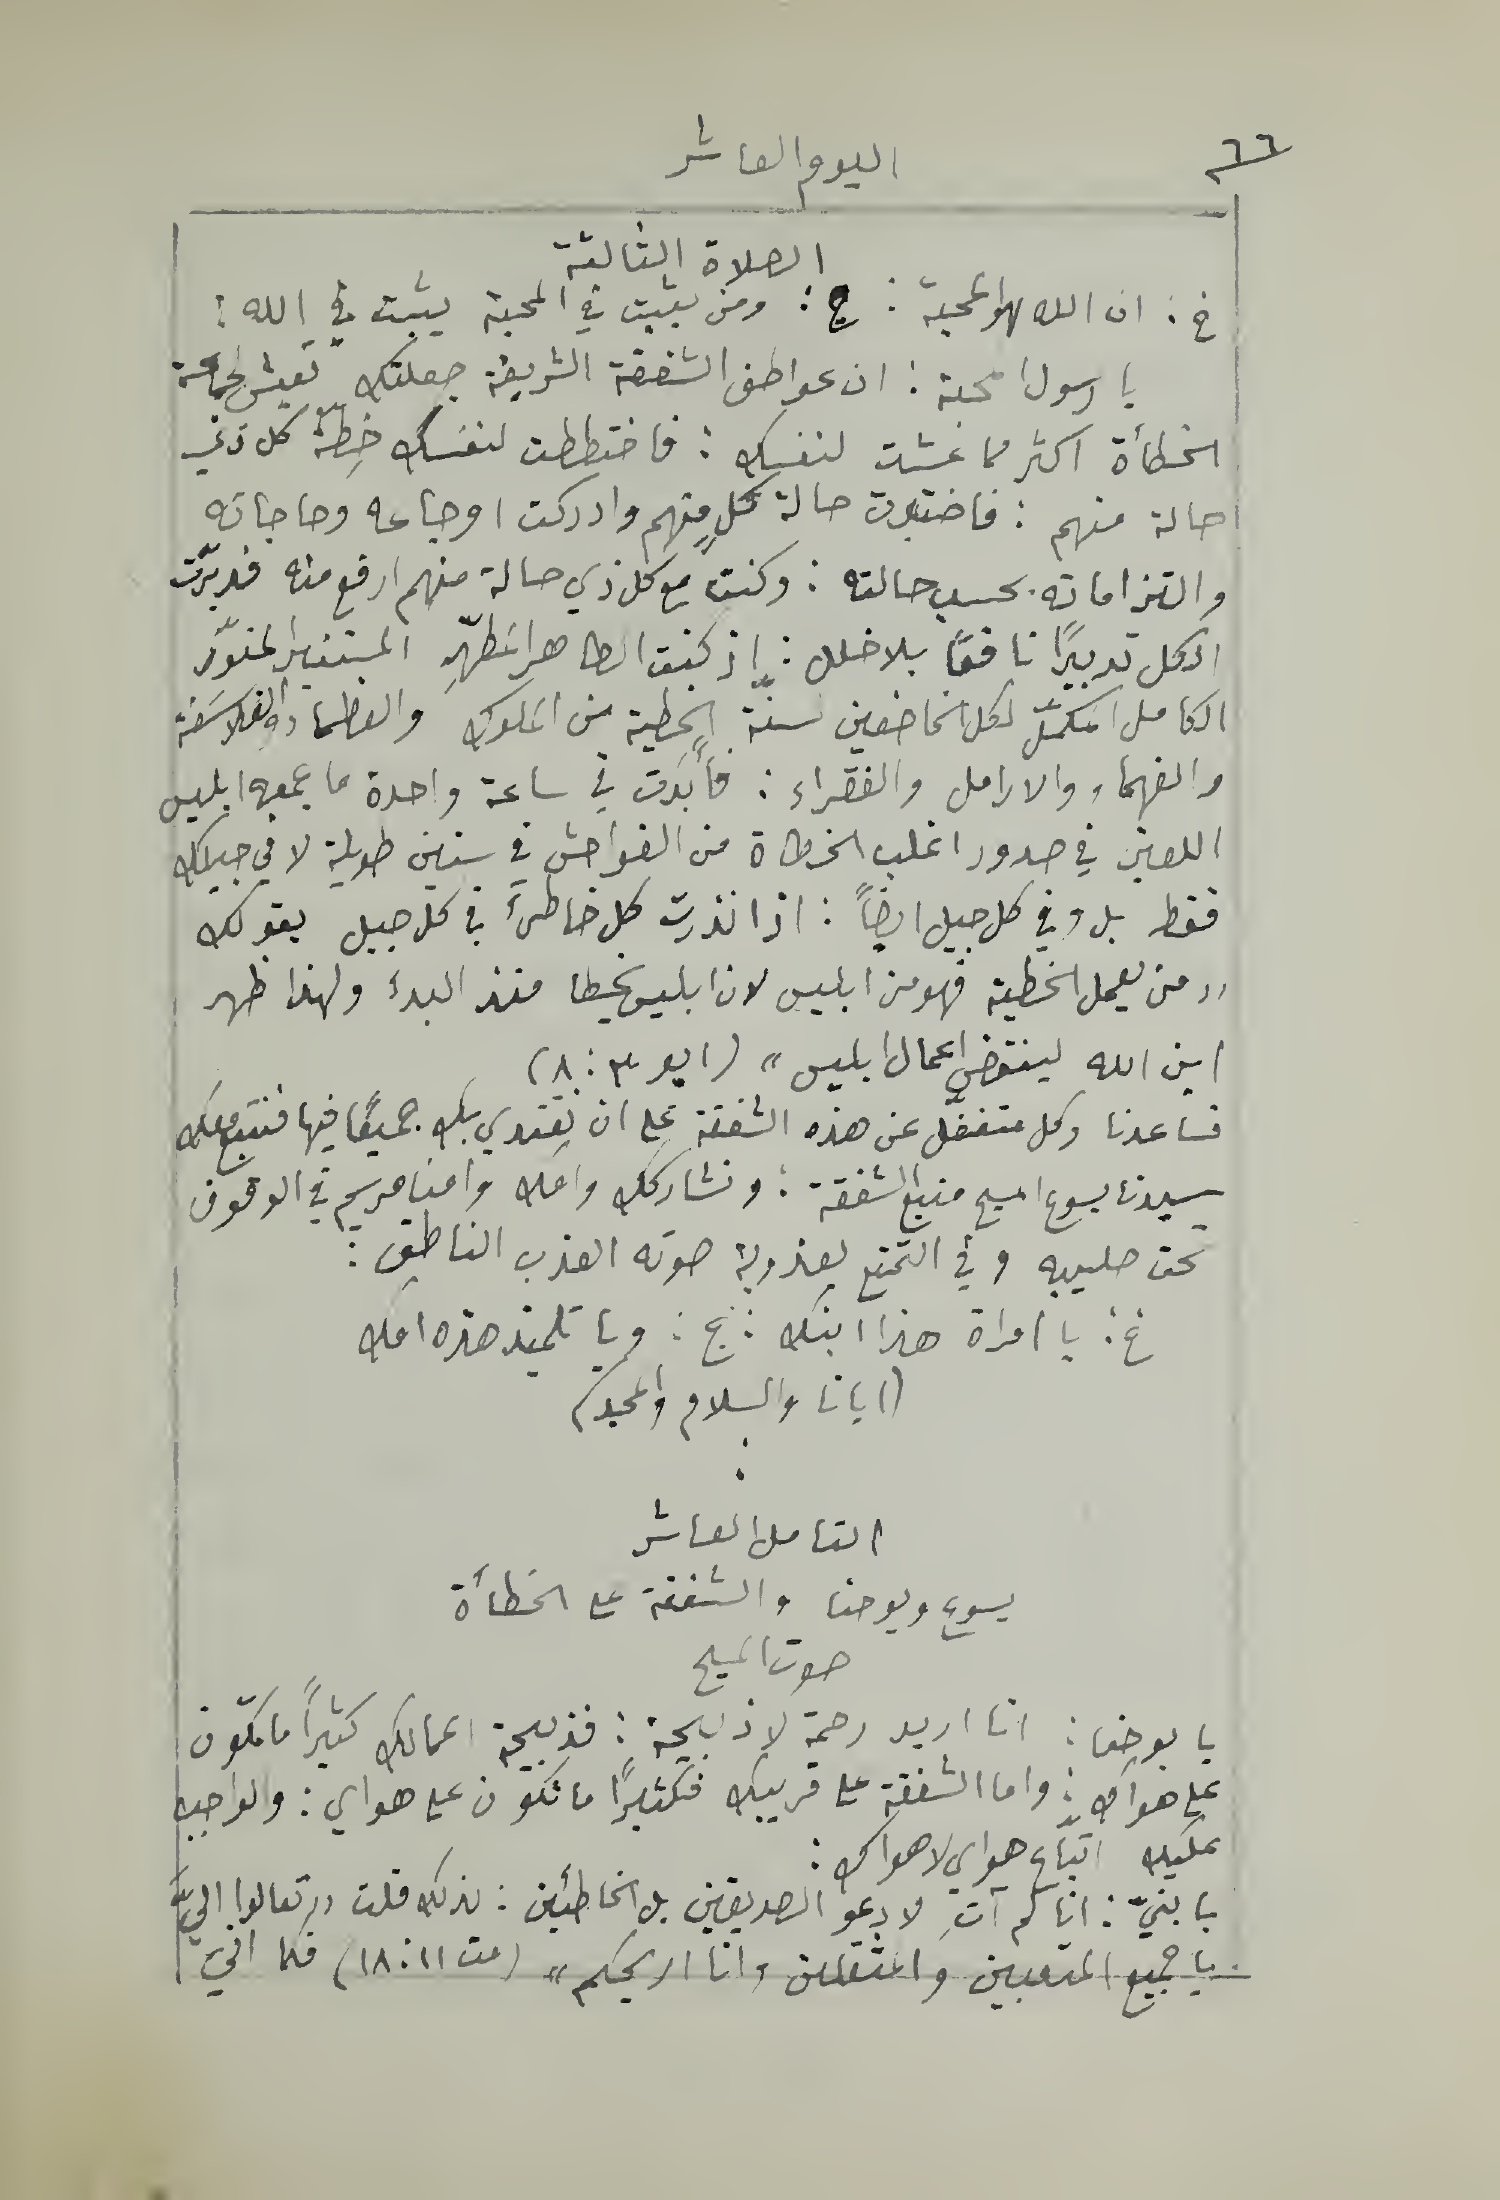 ٦٦
اليوم العاشر
الصلاة الثالثة
خ : ان الله هو المحبة : ج : ومن يثبت في المحبة يثبت في الله :
يا رسول المحبة : ان عواطف الشفقة الشريفة جعلتك تعيش لجماعة
الخطأة اكثر مما عشت لنفسك : فاختططت لنفسك خِطة كل ذي
حالة منهم : فاختبرت حالة كلٍ منهم وادركت اوجاعه وحاجاته
والتزاماته بحسب حالته : وكنت مع كل ذي حالة منهم ارفع منه فدبّرت
الكل تدبيرًا نافعًا بلا خلل : إذ كنت الطاهر المَطهّرِ المستنير المنوّر
الكامل المَكمّل لكل الخاضعين لسنّة الخطية من الملوك والعظماء والفلاسَفة
والفهماء والارامل والفقراء : فأَبَدَت في ساعة واحدة ما جمعه ابليس
اللعين في صدور اغلب الخطاة من الفواحش في سنين طويلة لا في جيلك
فقط بل وفي كل جيل ايضاً : اذ انذرت كل خاطىءٍ في كل جيل بقولك
«من يعمل الخطية فهو من ابليس لان ابليس يخطا منذ البدء ولهذا ظهر
ابن الله لينقض اعمال ابليس» (ايو ٣ : ٨)
فساعدنا وكل متغفّل عن هذه الشفقة على ان نقتدي بك جميعًا فيها فنتبع معك
سيدنا يسوع المسيح منبع الشفقة : ونشاركك وامك وامنا مريم في الوقوف
تحت صليبه وفي التمتع بعذوبة صوته العذب الناطق :
خ : يا امراة هذا ابنك : ج : ويا تلميذ هذه امك
(ابانا والسلام والمجد)
:
التامل العاشر
يسوع ويوحنا والشفقة على الخَطأة
صوت المسيح
يا يوحنا : انا اريد رحمة لا ذبيحة : فذبيحة اعمالك كثيراً ما تكون
على هواك : واما الشفقة على قريبك فكثيرًا ما تكون على هواي : والواجب
عليك اتّباع هواي لا هواك :
يا بنيّ : انا لم آتِ لادعو الصديقين بل الخاطئين : لذلك قلت «تعالوا اليَّ
يا جميع المتعبين والمثقلين وانا اريحكم» (مت ١١ : ١٨) فكما اني